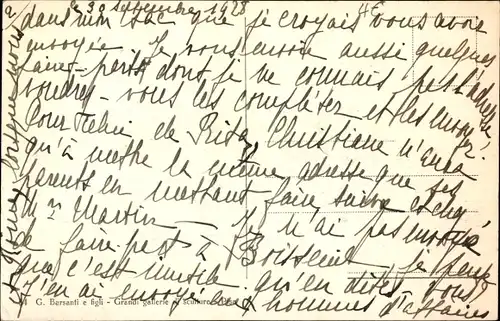 le 30 septembre 1928
4e
2)
dans mon sac que je croyais vous avoir
envoyée. Je vous envoie aussi quelques
faire-parts dont je ne connais pas l'adresse
voudrez-vous les compléter et les envoyer.
Pour celui de Rita, Christiane n'aura
qu'à mettre la même adresse que ses
parents en mettant faire suivre
Mr Martin — Je n'ai pas envoyé
de faire part à je pense
que c'est inutile qu'en dites vous
J'en ai envoyé à hommes d'affaires
G. Bersanti e figli - Grandi gallerie di sculture